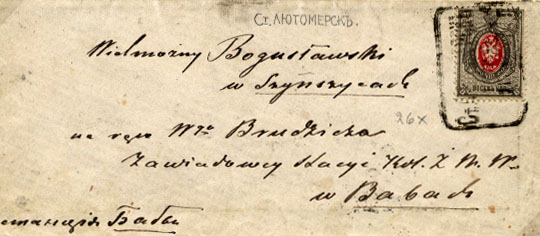 Ст. ЛЮТОМЕРСКЪ.
Wielmożny Bogusławski
w Szynszycach
26x
na ręce Wgo Brudzicza
Zawiadowcy Stacyi Kol. Ż. W. W.
w Babach
станція Бабы